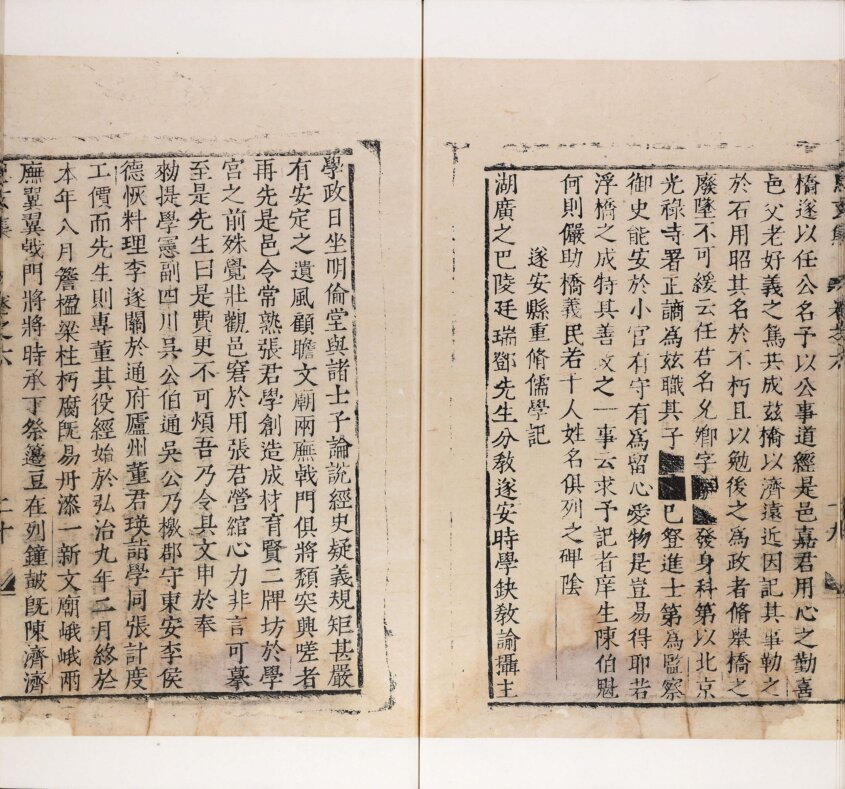 橋遂以任公名予以公事道經是邑嘉君用心之勤喜
邑父老好義之篤共成茲橋以濟遠近因記其事勒之
於石用昭其名於不朽且以勉後之為政者脩舉橋之
廢墜不可緩云任君名兊鄉字發身科第以北京
光祿寺署正謫為玆職其子已登進士第為監察
御史能安於小官有守有為留心愛物是豈易得耶若
浮橋之成特其善政之一事云求予記者庠生陳伯魁
何則儼助橋義民若干人姓名俱列之碑陰
遂安縣重脩儒學記
湖廣之巴陵廷瑞鄧先生分教遂安時學缺教諭攝主
十九
學政日坐明倫堂與諸士子論說經史疑義規矩甚嚴
有安定之遺風顧瞻文廟兩廡戟門俱將頹突興嗟者
再先是邑令常熟張君學創造成材育賢二牌坊於學
宮之前殊覺壯觀邑窘於用張君營綰心力非言可摹
至是先生曰是費更不可煩吾乃令具文申於奉
勑提學憲副四川吳公伯通吳公乃檄郡守東安李侯
德恢料理李遂關於通府廬州董君瑛詣學同張計度
工價而先生則專董其役經始於弘治九年二月終於
本年八月簷楹梁柱朽腐旣易丹漆一新文廟峨峨兩
廡翼翼戟門將將時承丁祭籩豆在列鐘皷旣陳濟濟
卷之六
二十